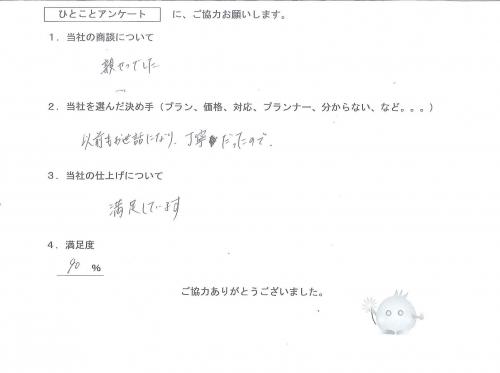 ひとことアンケート に、ご協力お願いします。
1．当社の商談について
親せつでした
2．当社を選んだ決め手（プラン、価格、対応、プランナー、分からない、など。。。）
以前もお世話になり、丁寧だったので、
3．当社の仕上げについて
満足しています
4．満足度
90 %
ご協力ありがとうございました。